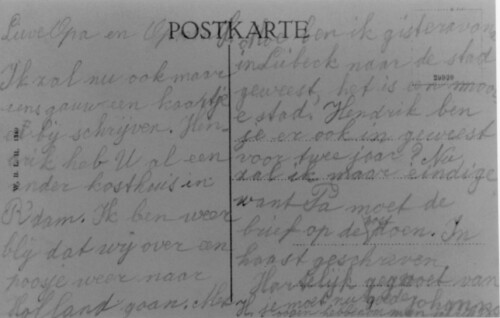 POSTKARTE
Lieve Opa en
Ik zal nu ook maar
eens gauw een kaartje
er bij schrijven. Hen-
drik heb U al een
ander kosthuis in
R'dam. Ik ben weer
blij dat wij over een
poosje weer naar
Holland gaan.
ben ik gisteravond
in Lübeck naar de stad
geweest, het is een mooi
e stad. Hendrik ben
je er ook in geweest
voor twee jaar? Nu
zal ik maar eindige
want Pa moet de
brief op de doen. In
haast geschreven
Hartelijk gegroet van
Johanna